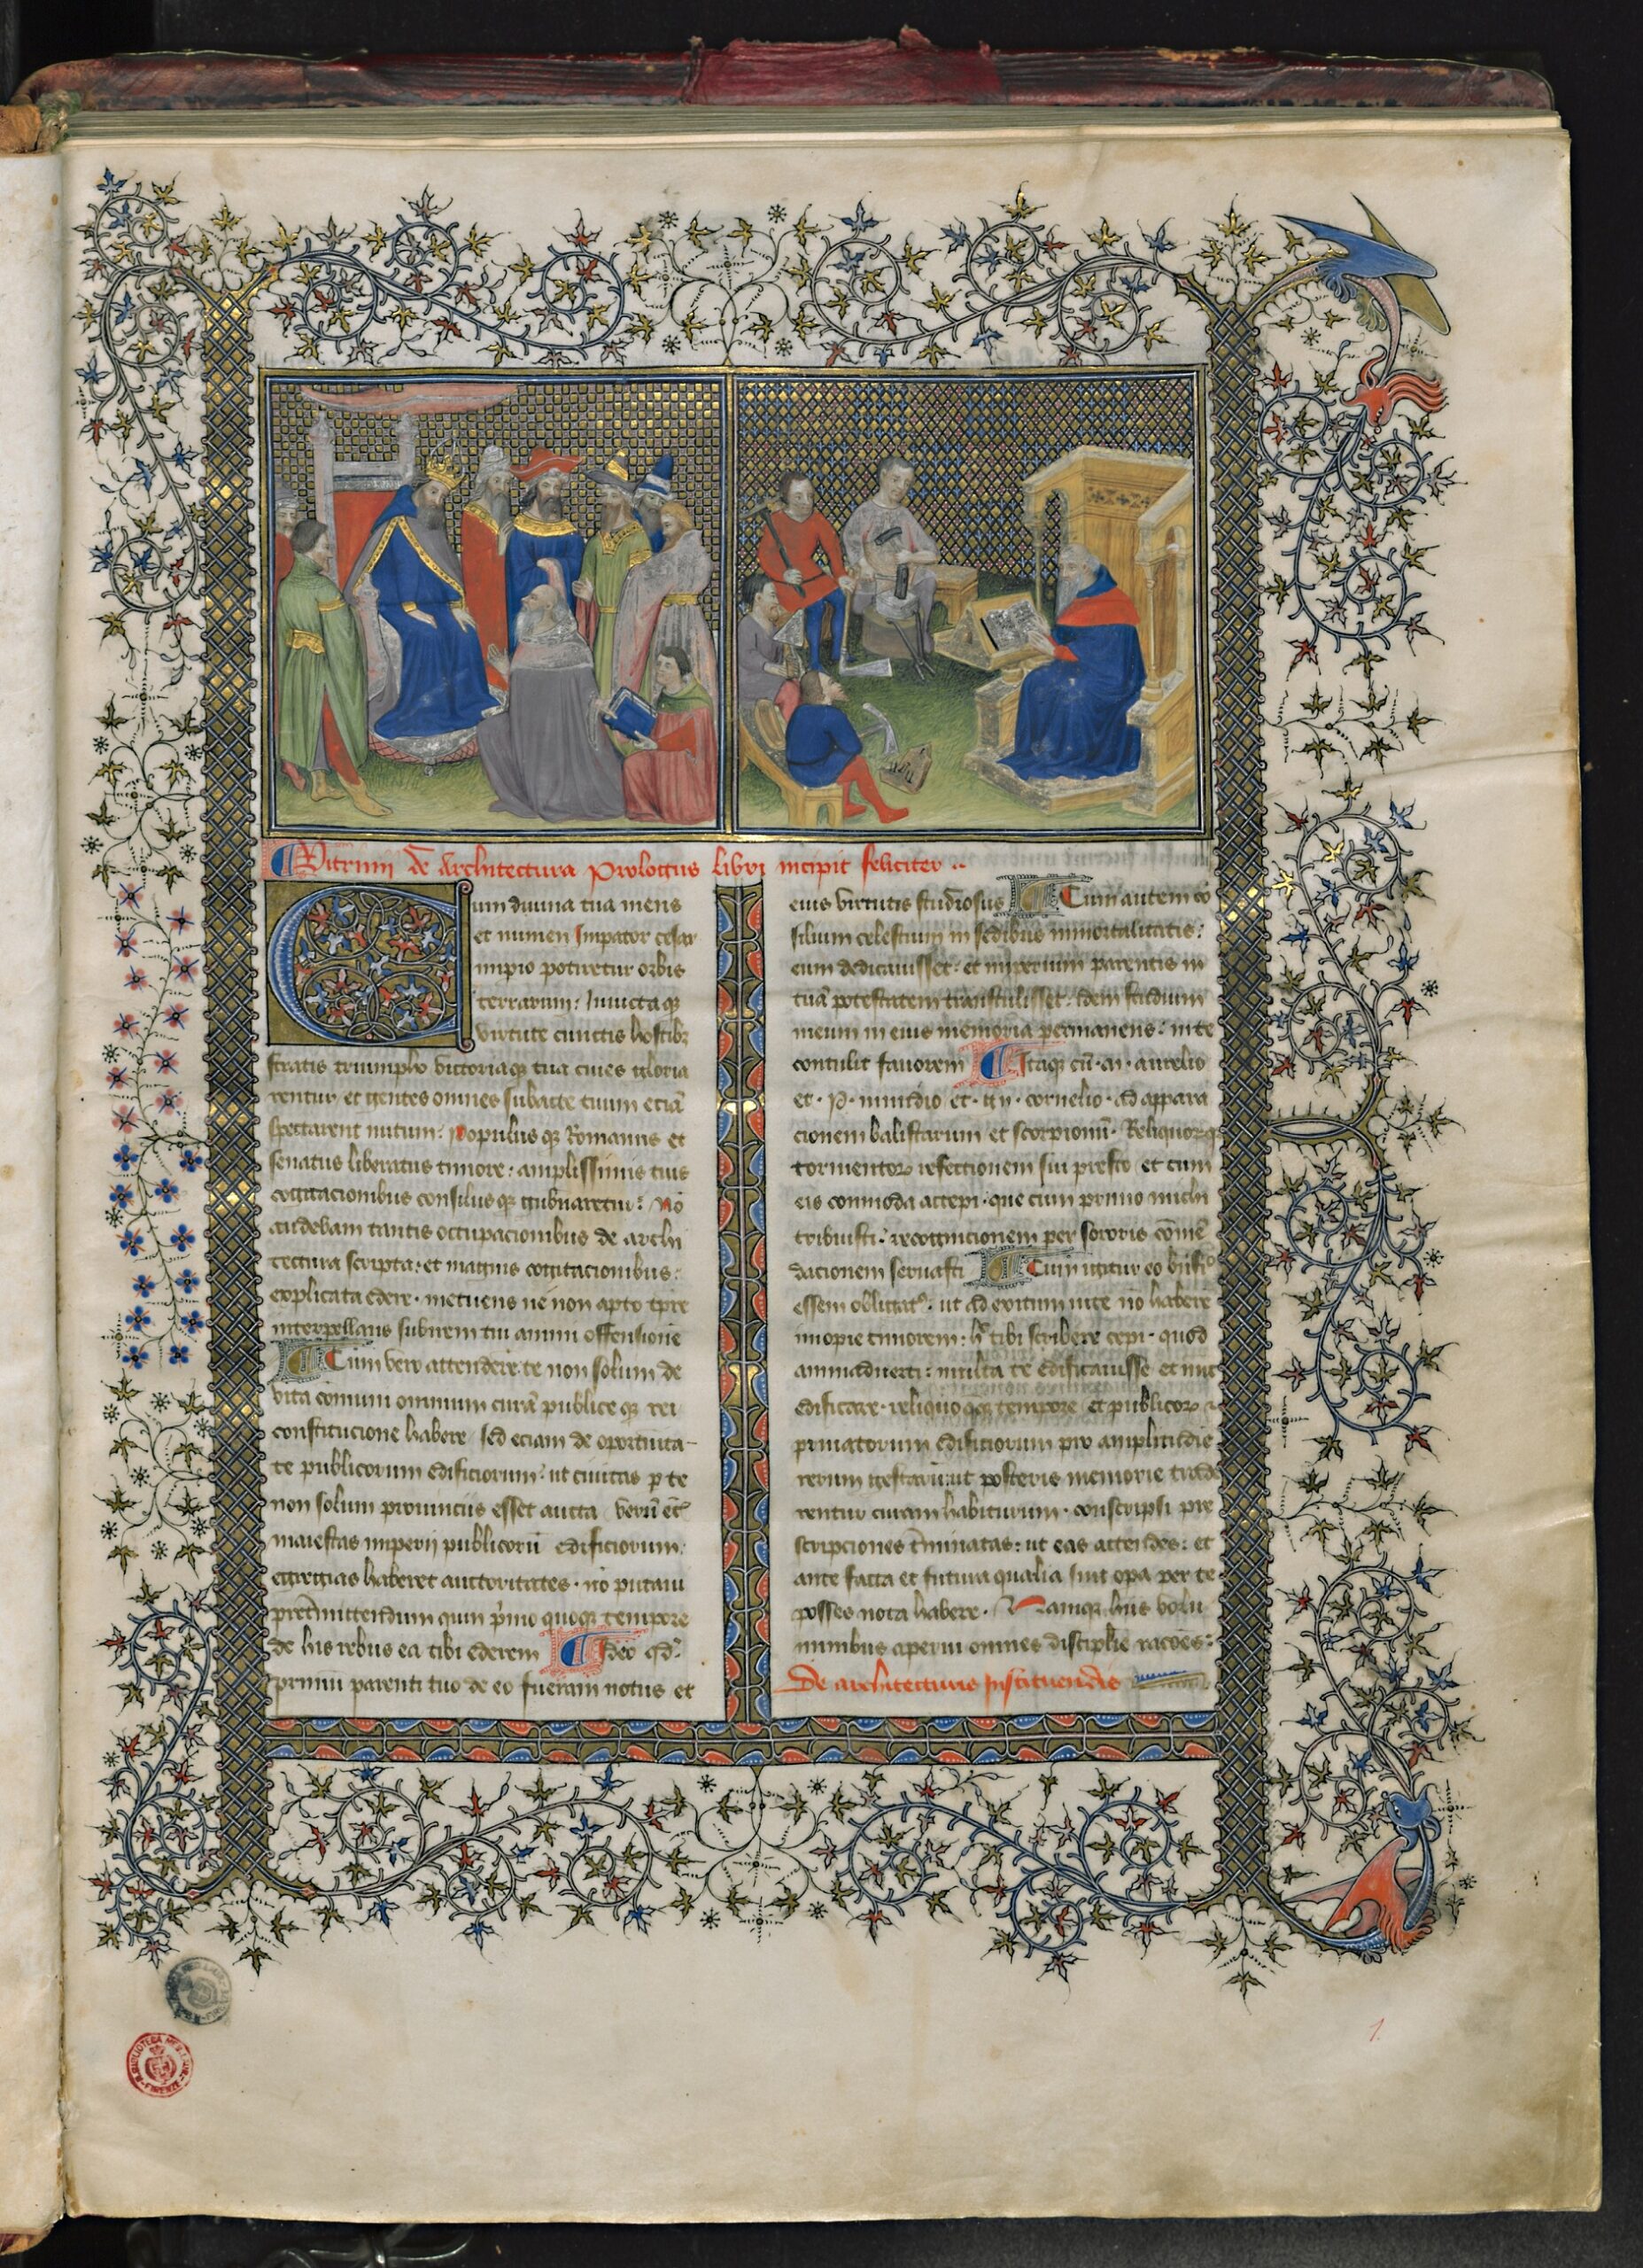 Vitruui de Architectura Prologus libri incipit feliciter
Cum diuina tua mens
et numen Impator cesar
impio potiretur orbis
terrarum: Inuictaq
virtute cunctis hostibꝫ
stratis triumpho victoriaq tua ciues gloria
rentur et gentes omnes subacte tuum eciā
spectarent nutum: populus qꝫ Romanus et
senatus liberatus timore: amplissimis tuis
cogitacionibus consiliis qꝫ gubnaretur: Nō
audebam tantis occupacionibus de archi
tectura scripta: et magnis cogitacionibus:
explicata edere. metuens ne non apto tpre
interpellans subirem tui animi offensione
Cum vero attenderē te non solum de
vita comuni omnium curā publice qꝫ rei
constitucione habere sed eciam de oportuita-
te publicorum edificiorum: ut ciuitas p te
non solum prouinciis esset aucta verū ect
maiestas imperij publicorū edificiorum:
egregias haberet auctoritates. nō putaui
pretmittendum quin pimo quoqꝫ tempore
de his rebus ea tibi ederem Ideo qd
primū parenti tuo de eo fueram notus et
eius virtutis studiosus Cum autem cō
silium celestium in sedibus inmortalitatis:
eum dedicauisset: et imperium parentis in
tuā potestatem transtulisset: Idem studium
meum in eius memoria permanens: in te
contulit fauorem Itaqꝫ cū. m. aurelio
et. p. minidio et. gn. cornelio. ad appara
cionem balistarum et scorpionū. Reliquorqꝫ
tormentoꝝ refectionem fui presto et cum
eis commoda accepi. que cum primo michi
tribuisti: recognicionem per sororis cōmē
dacionem seruasti Cum igitur eo bnfiō
essem obligatꝰ. ut ad exitum uite nō haberē
inopie timorem: h tibi scribere cepi. quod
animaduerti: multa te edificauisse et nūc
edificare. reliquo qꝫ tempore et publicoꝝ et
priuatorum edificiorum pro amplitudie
rerum gestarū: ut posteris memorie trade
rentur curam habiturum. conscripsi pre
scripciones tminatas: ut eas attendes: et
ante facta et futura qualia sint opa per te
posses nota habere. Namqꝫ his volu
minibus aperui omnes disciplie racōes:
De architecturis Instituendis
1.
R. BIBLIOTECA MED. LAUR.
FIRENZE